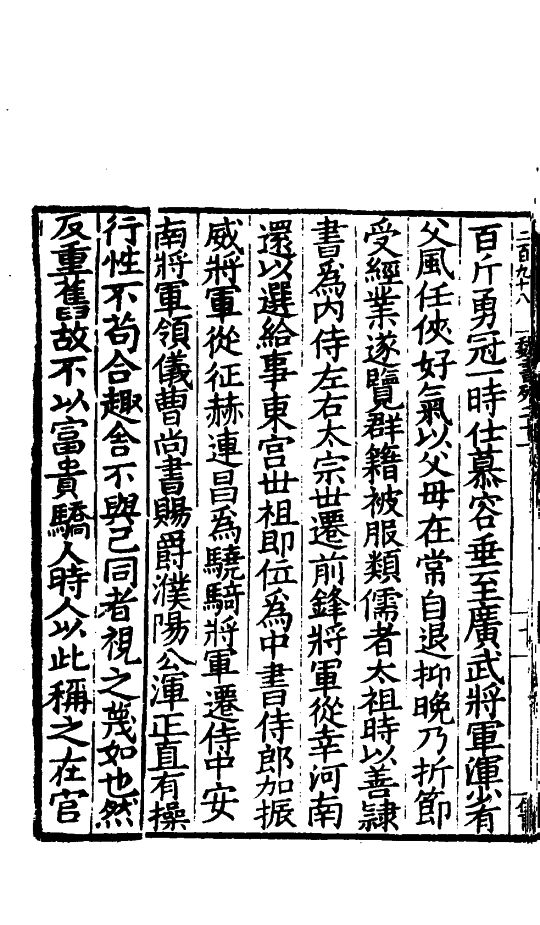 百斤勇冠一時仕慕容垂至廣武將軍渾少有
父風任俠好氣以父母在常自退抑晚乃折節
受經業遂覽群籍被服類儒者太祖時以善隸
書為內侍左右太宗世遷前鋒將軍從幸河南
還以選給事東宮世祖即位為中書侍郎加振
威將軍從征赫連昌為驍騎將軍遷侍中安
南將軍領儀曹尚書賜爵濮陽公渾正直有操
行性不苟合趣舍不與己同者視之蔑如也然
反重舊故不以富貴驕人時人以此稱之在官